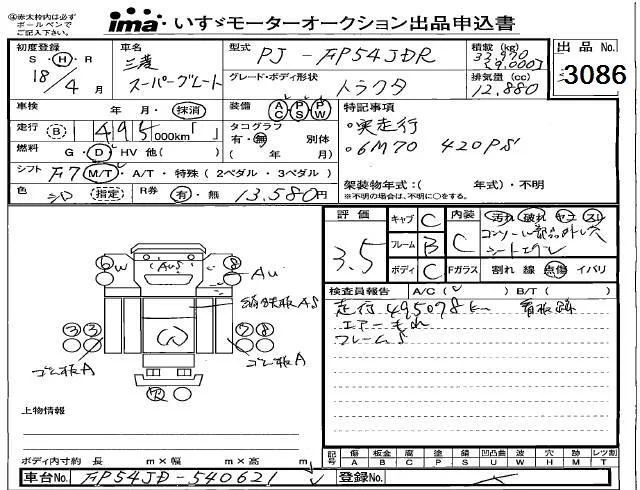 ④赤太枠内は必ず
ボールペンで
ご記入下さい。
ima いすゞモーターオークション出品申込書
初度登録
S・H・R
18年
4月
車名
三菱
スーパーグレート
型式
PJ-FP54JDR
積載 (kg)
[9,000]
グレード・ボディ形状
トラクタ
排気量 (cc)
12,880
出品 No.
3086
車検
年・月・抹消
装備 AC PS PW
特記事項
・実走行
・6M70 420PS
走行 (B) 495,000km「 」
タコグラフ
有・無 別体
( 年 月)
燃料 G・D・HV 他( )
シフト F7 M/T・A/T・特殊 (2ペダル・3ペダル)
架装物年式:( 年式)・不明
※不明の場合は、不明に○をする。
色 シロ 指定
R券 有・無 13,580円
評価
3.5
キャブ C
フレーム B
ボディ C
内装
C
汚れ 破れ ヤコ スレ
Fガラス 割れ 線 点傷 イバリ
検査員報告 A/C( ) B/T( )
走行495078km 看板跡
エアーもれ
フレームS
AuS
W
8
Au
縞鉄板AS
3 3
7 8
ゴム板A
ゴム板A
上物情報
ボディ内寸約 長 m×幅 m×高 m
記号
傷 板金 腐 塗 錆 凹凸曲 波 穴 跡 レツ割
A B C P S U W H M T
車台No. FP54JD-540621
登録No.